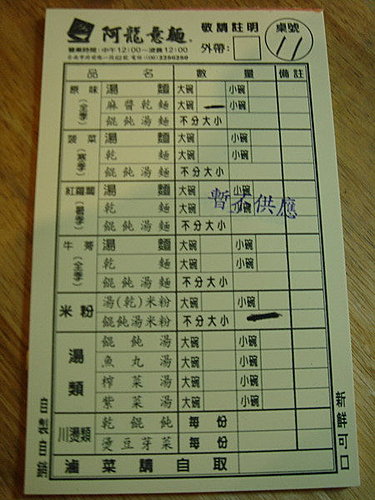 阿龍意麵
敬請註明
外帶:
桌號
11
營業時間:中午12:00~凌晨12:00
品名 數量 備註
原味(全季) 湯麵 大碗 小碗
麻醬乾麵 大碗 小碗
餛飩湯麵 不分大小
菠菜(寒季) 湯麵 大碗 小碗
乾麵 大碗 小碗
餛飩湯麵 不分大小
紅蘿蔔(暑季) 湯麵 大碗 小碗
乾麵 大碗 小碗
餛飩湯麵 不分大小
暫不供應
牛蒡(全季) 湯麵 大碗 小碗
乾麵 大碗 小碗
餛飩湯麵 不分大小
米粉 湯(乾)米粉 大碗 小碗
餛飩湯米粉 不分大小
湯類 餛飩湯 大碗 小碗
魚丸湯 大碗 小碗
榨菜湯 大碗 小碗
紫菜湯 大碗 小碗
川燙類 乾餛飩 每份
燙豆芽菜 每份
滷菜請自取
新鮮可口